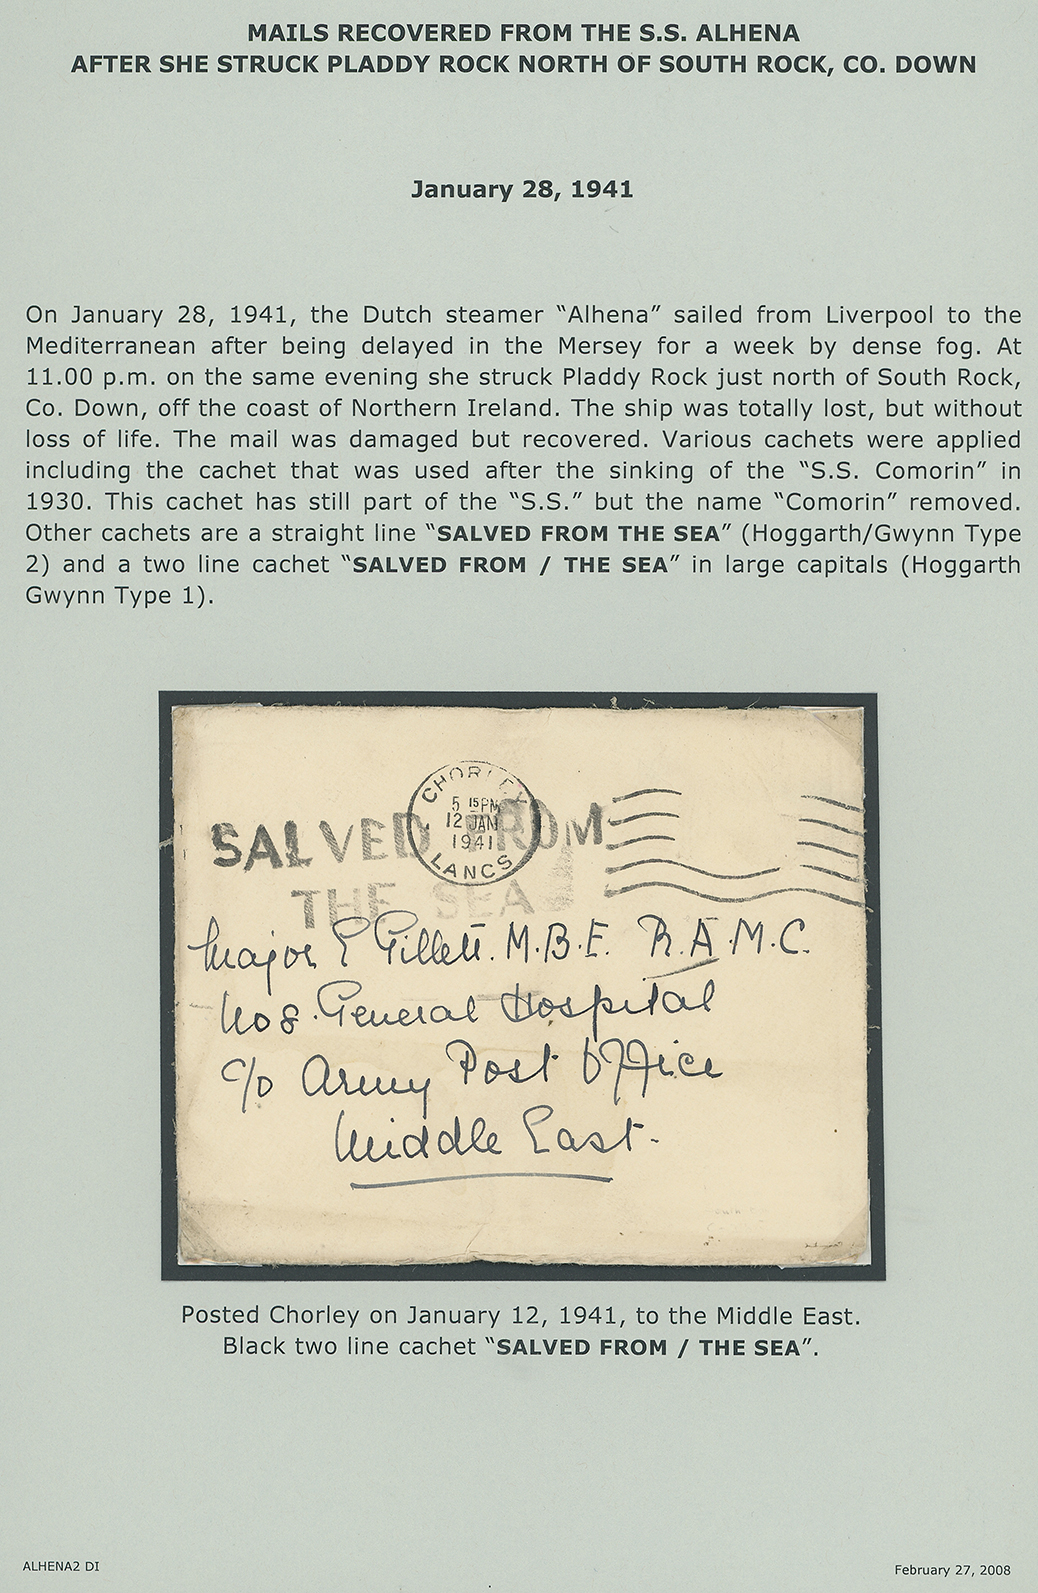 MAILS RECOVERED FROM THE S.S. ALHENA
AFTER SHE STRUCK PLADDY ROCK NORTH OF SOUTH ROCK, CO. DOWN
January 28, 1941
On January 28, 1941, the Dutch steamer “Alhena” sailed from Liverpool to the
Mediterranean after being delayed in the Mersey for a week by dense fog. At
11.00 p.m. on the same evening she struck Pladdy Rock just north of South Rock,
Co. Down, off the coast of Northern Ireland. The ship was totally lost, but without
loss of life. The mail was damaged but recovered. Various cachets were applied
including the cachet that was used after the sinking of the “S.S. Comorin” in
1930. This cachet has still part of the “S.S.” but the name “Comorin” removed.
Other cachets are a straight line “SALVED FROM THE SEA” (Hoggarth/Gwynn Type
2) and a two line cachet “SALVED FROM / THE SEA” in large capitals (Hoggarth
Gwynn Type 1).
CHORLEY
5 15 PM
12 JAN
1941
LANCS
SALVED FROM
THE SEA
Major E Gillett. M.B.E. R.A.M.C.
No 8. General Hospital
c/o Army Post Office
Middle East.
Posted Chorley on January 12, 1941, to the Middle East.
Black two line cachet “SALVED FROM / THE SEA”.
ALHENA2 DI
February 27, 2008